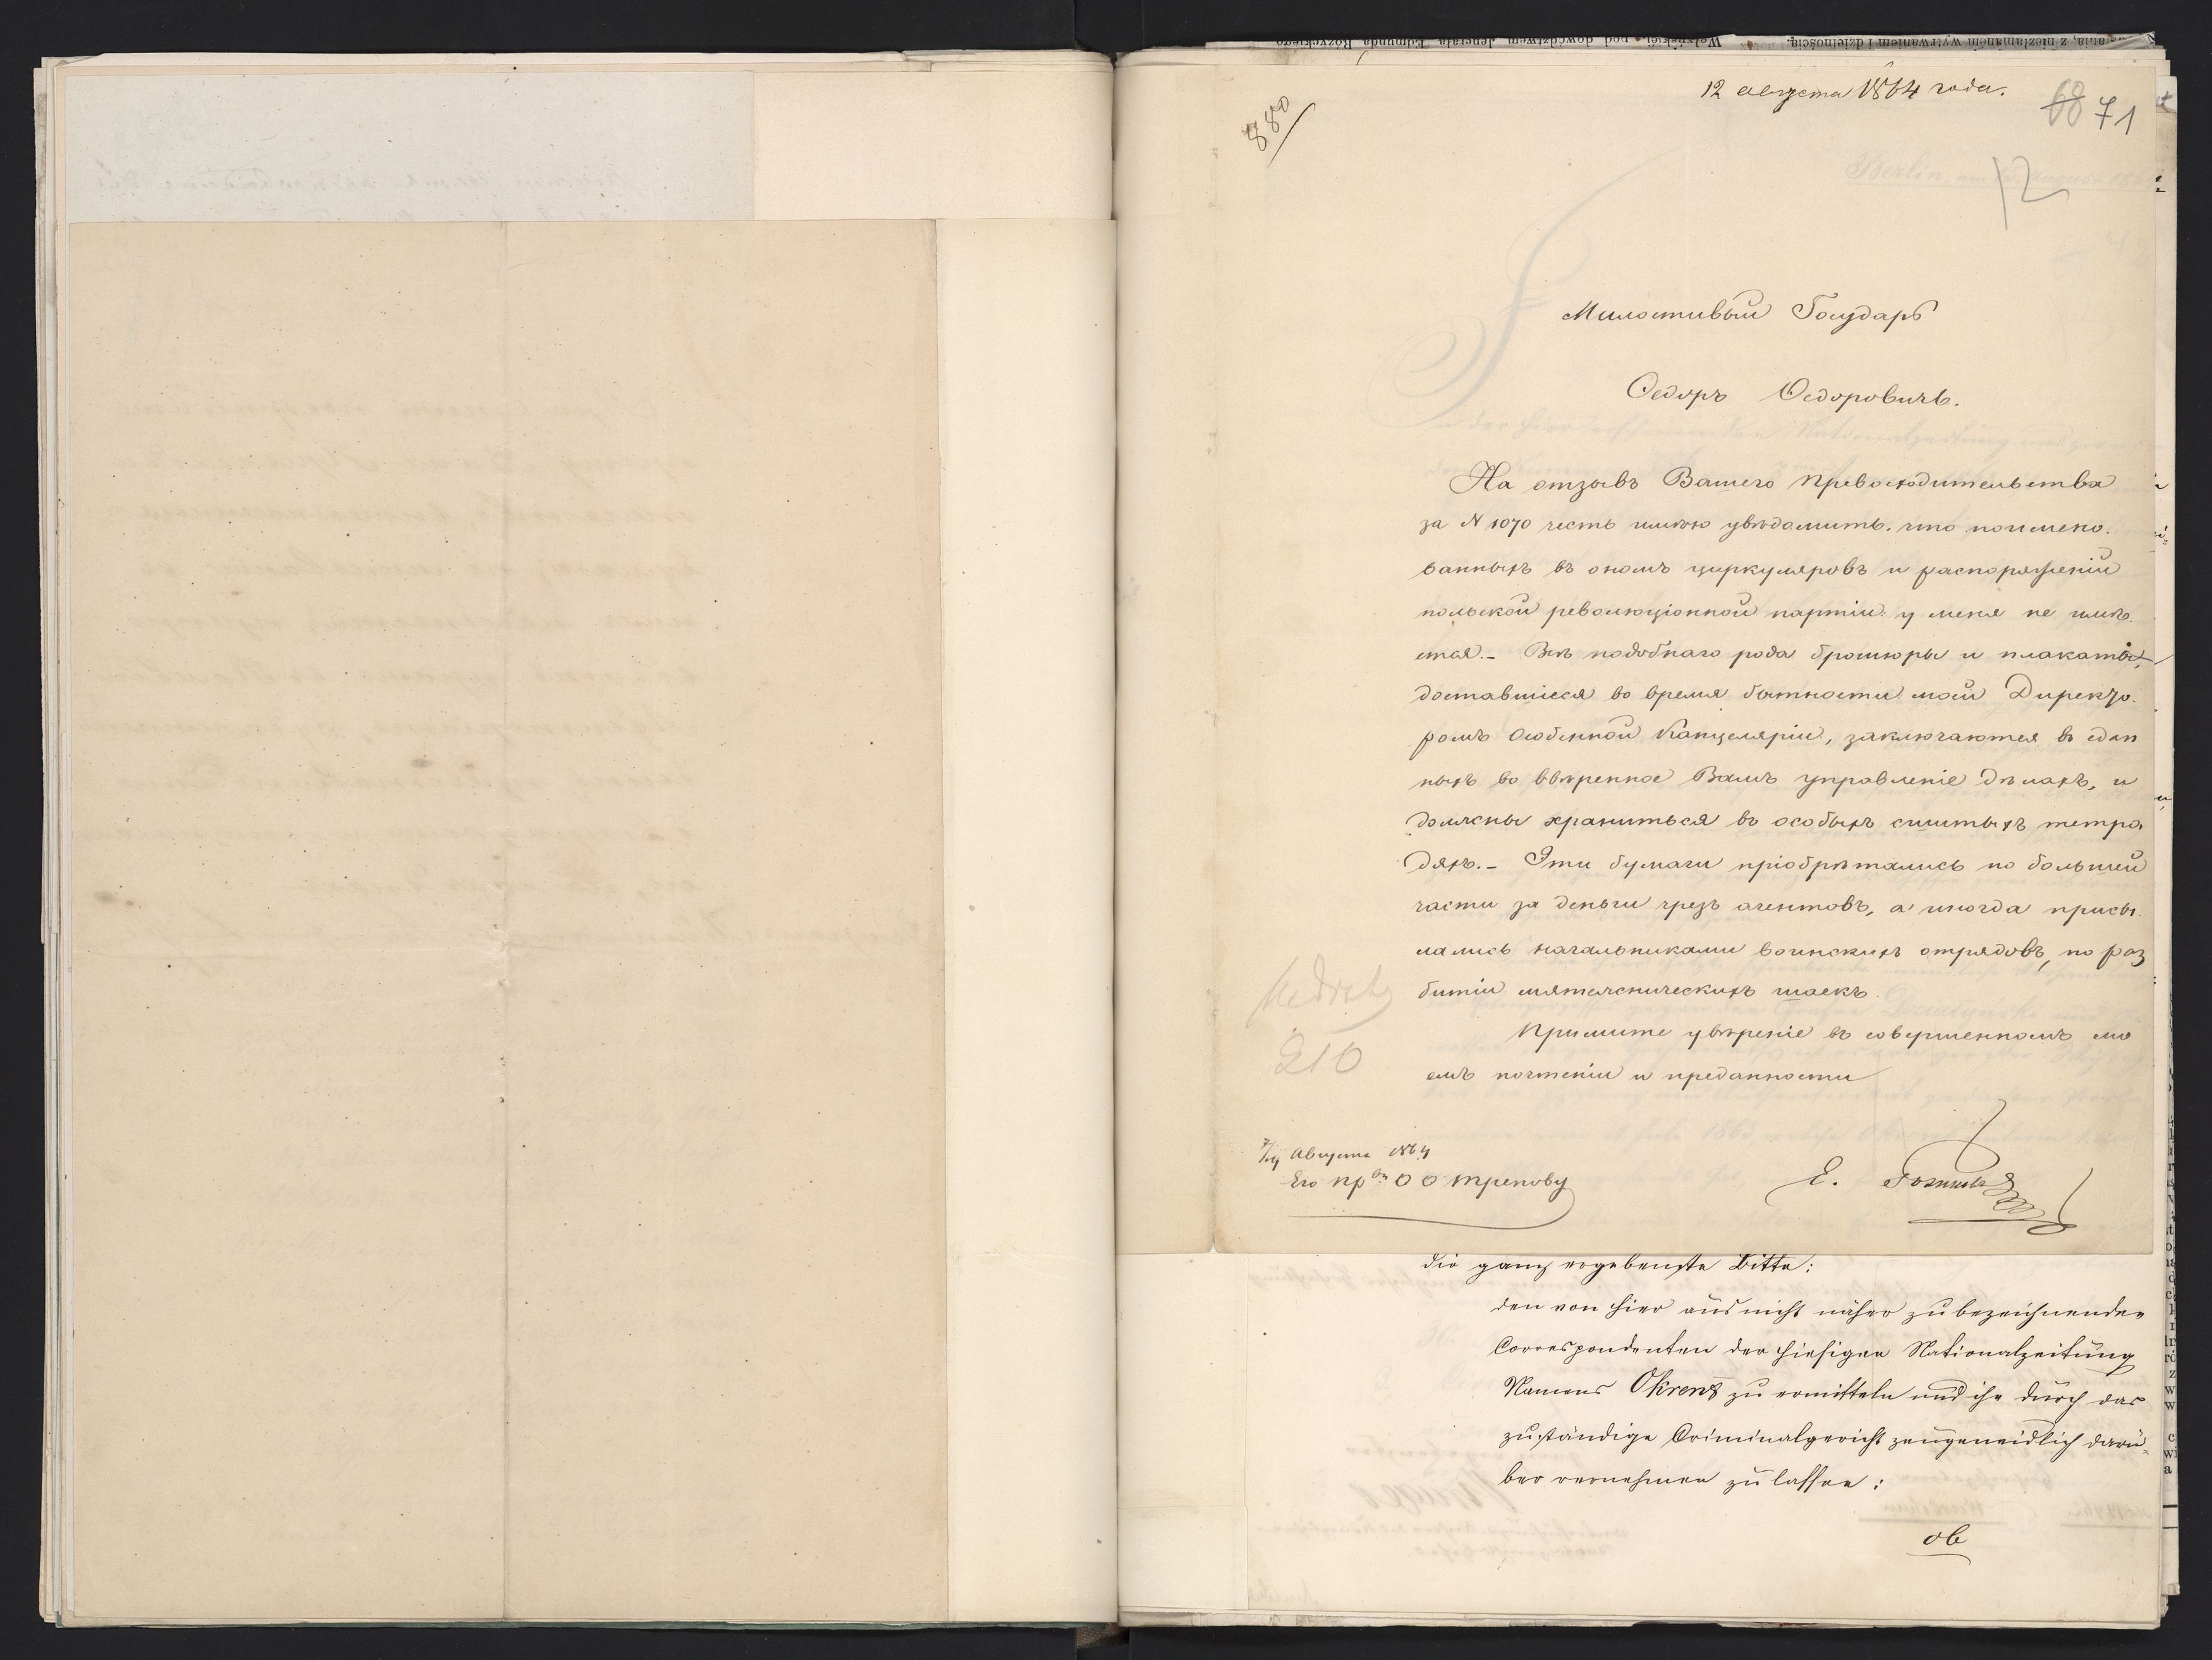 12 августа 1864 года.
880
68 71
12
Милостивый Государь
Федоръ Федоровичъ.
На отзывъ Вашего Превосходительства
за N 1070 честь имѣю увѣдомить, что поимено-
ванныхъ въ ономъ циркуляровъ и распоряженiй
польской революцiонной партiи у меня не имѣ-
ется.- Всѣ подобнаго рода брошюры и плакаты,
доставшiеся во время бытности моей Директо-
ромъ Особенной Канцелярiи, заключаются въ сдан
ныхъ во ввѣренное Вамъ управленiе дѣлахъ, и
должны храниться въ особыхъ сшитыхъ тетра
дяхъ.- Эти бумаги прiобрѣтались по большей
части за деньги чрезъ агентовъ, а иногда присы
лались начальниками воинскихъ отрядовъ, по раз
битiи мятежническихъ шаекъ.
Примите увѣренiе въ совершенномъ мо
емъ почтенiи и преданности
210
Августа 1864
Его Прву Ѳ Ѳ Трепову
Е.
die ganz ergebenste Bitte:
den von hier aus nicht näher zu bezeichnenden
Correspondenten der hiesigen Nationalzeitung
Namens Okrent zu ermitteln und ihn durch das
zuständige Criminalgericht zeugeneidlich darü-
ber vernehmen zu lassen:
ob